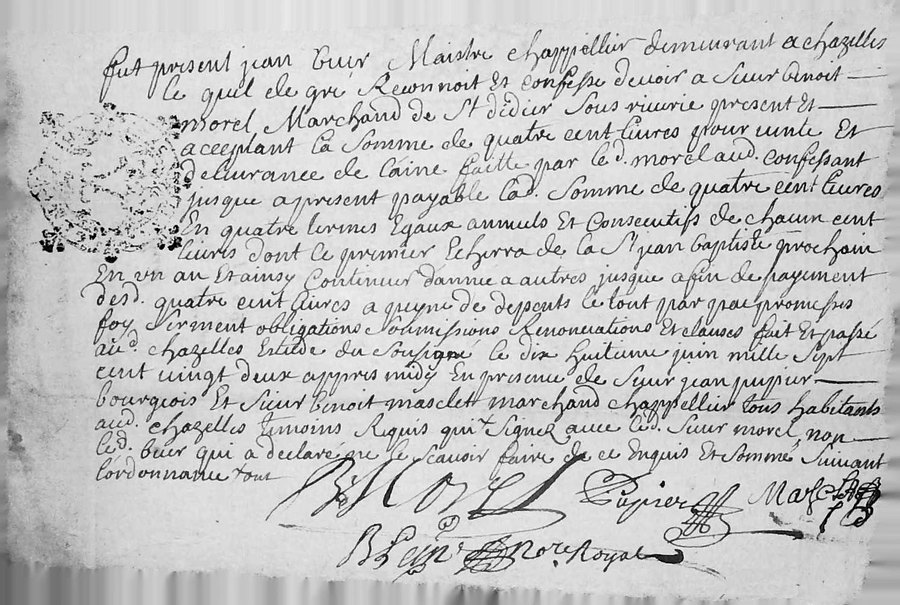 fut present jean buir Maistre chappellier demeurant a chazelles
le quel de gré Reconnoit Et confesse devoir a Sieur benoit
morel Marchand de St didier Sous riverie present Et
acceptant la Somme de quatre cent livres pour vente Et
delivrance de laine faitte par led. morel aud. confessant
jusque a present payable lad. Somme de quatre cent livres
En quatre termes Egaux annuels Et Consecutifs de chacun cent
livres dont le premier Echerra de la St jean baptiste prochain
En un an Et ainsy Continuer dannée a autres jusque a fin de payement
desd. quatre cent livres a peyne de depents le tout par par promesses
foy Serment obligations Soumissions Renonciations Et clauses fait Et passé
aud. chazelles Estude du Sousigné le dix huitieme juin mille Sept
cent vingt deux appres midy En presence de Sieur jean pupier
bourgeois Et Sieur benoit masclet marchand chappellier tous habitants
aud. chazelles temoins Requis qui Signez avec led. Sieur morel, non
led. buir qui a declaré ne le Scavoir faire de ce Enquis Et Sommé Suivant
lordonnance
Morel Pupier
Nore Royal